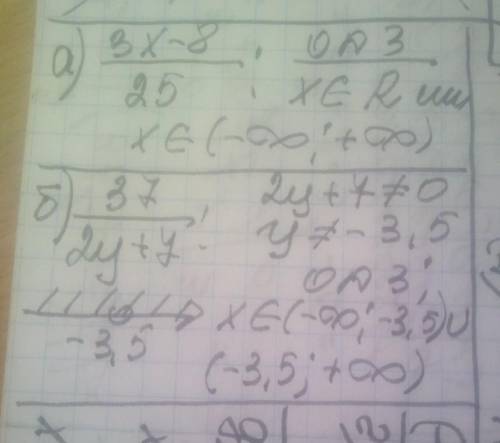 а) 3x-8/25; ОДЗ x∈R или
x∈(-∞; +∞)
б) 37/2y+7; 2y+7≠0
y≠-3,5
ОДЗ;
-3,5 x∈(-∞; -3,5)∪
(-3,5; +∞)